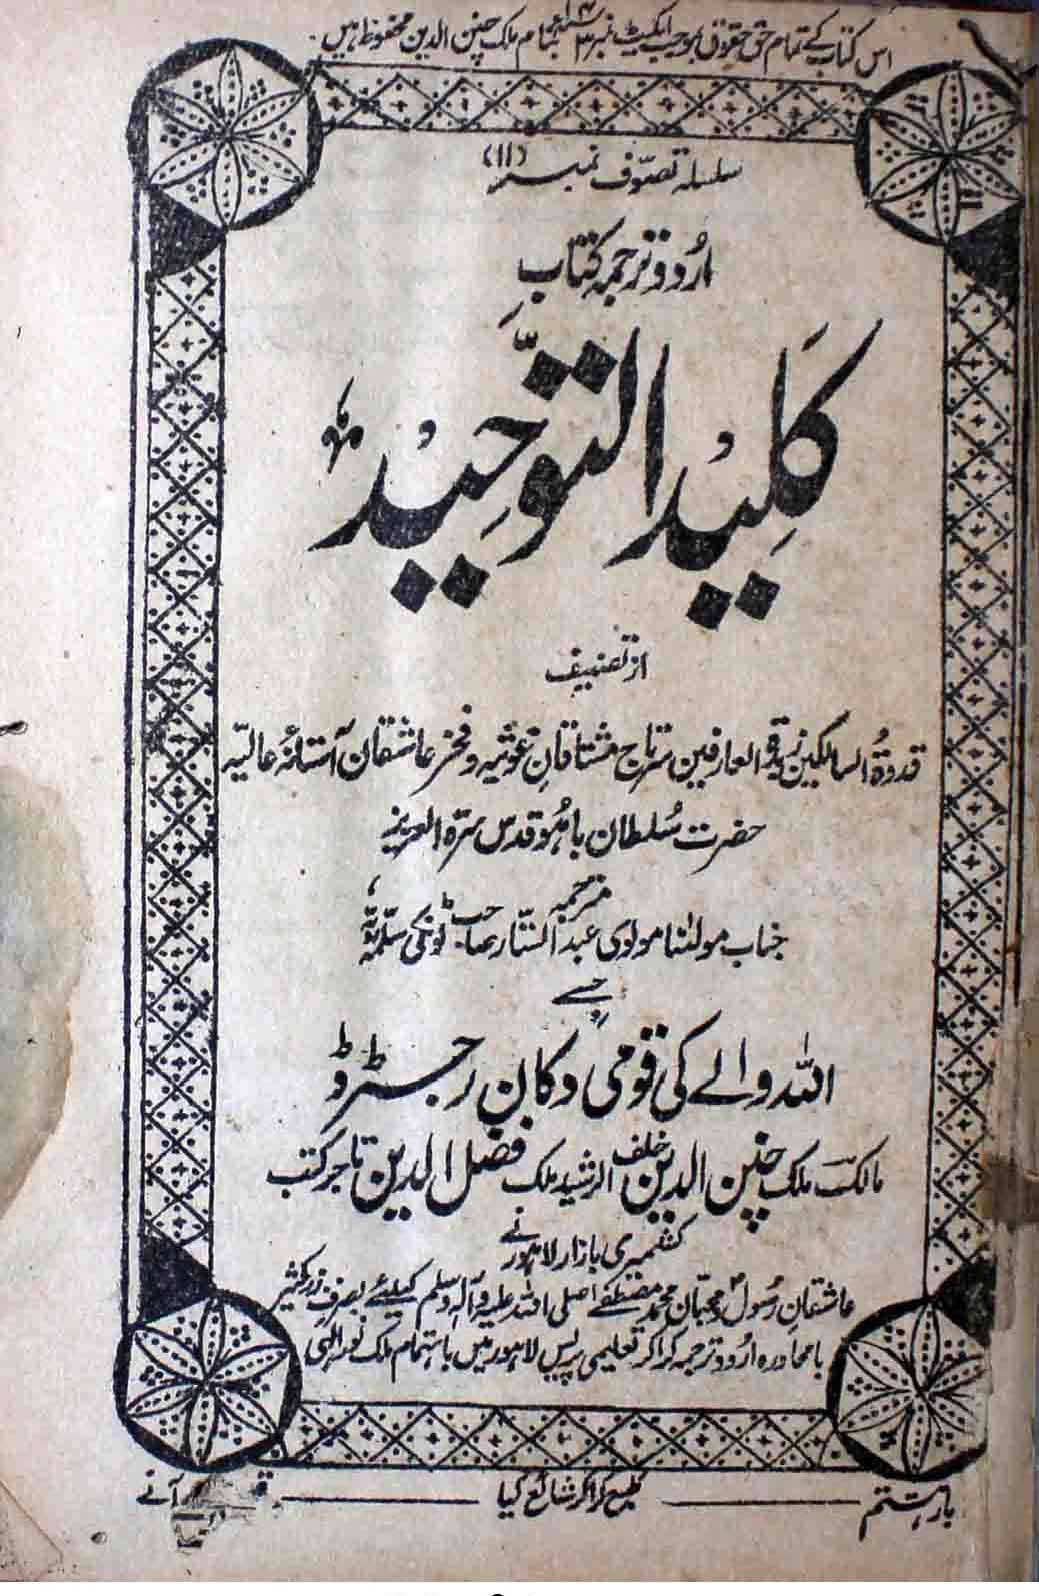 اس کتاب کے تمام حق حقوق بموجب ایکٹ نمبر ۳ ۱۹۱۴ء بنام ملک چنن الدین محفوظ ہیں۔
سلسلہ تصوّف نمبر (۱۱)
اُردو ترجمہ کتابِ
کَلِیْدُ التَّوحِیْد
از تصنیف
قدوۃُ السالکین زبدۃ العارفین سرتاج مشتاقانِ غوثیہ و فخر عاشقان آستانۂ عالیہ
حضرت سُلطان باہُو قدس سرّہ العزیز
مترجمہ
جناب مولٰنا مولوی عبد الستّار صاحب ٹونکی سلمہ اللہ
جسے
اللہ والے کی قومی دکان رجسٹرڈ
مالک ملک چنن الدین خلف الرشید ملک فضل الدین تاجر کتب
کشمیری بازار لاہور نے
عاشقانِ رسول و محبّان محمد مصطفےٰ صلی اللہ علیہ وآلہ وسلم کیلئے بصرف زر کثیر
بامحاورہ اُردو ترجمہ کرا کر تعلیمی پریس لاہور میں باہتمام ملک نور الٰہی
بار ہشتم طبع کرا کر شائع کیا آنے